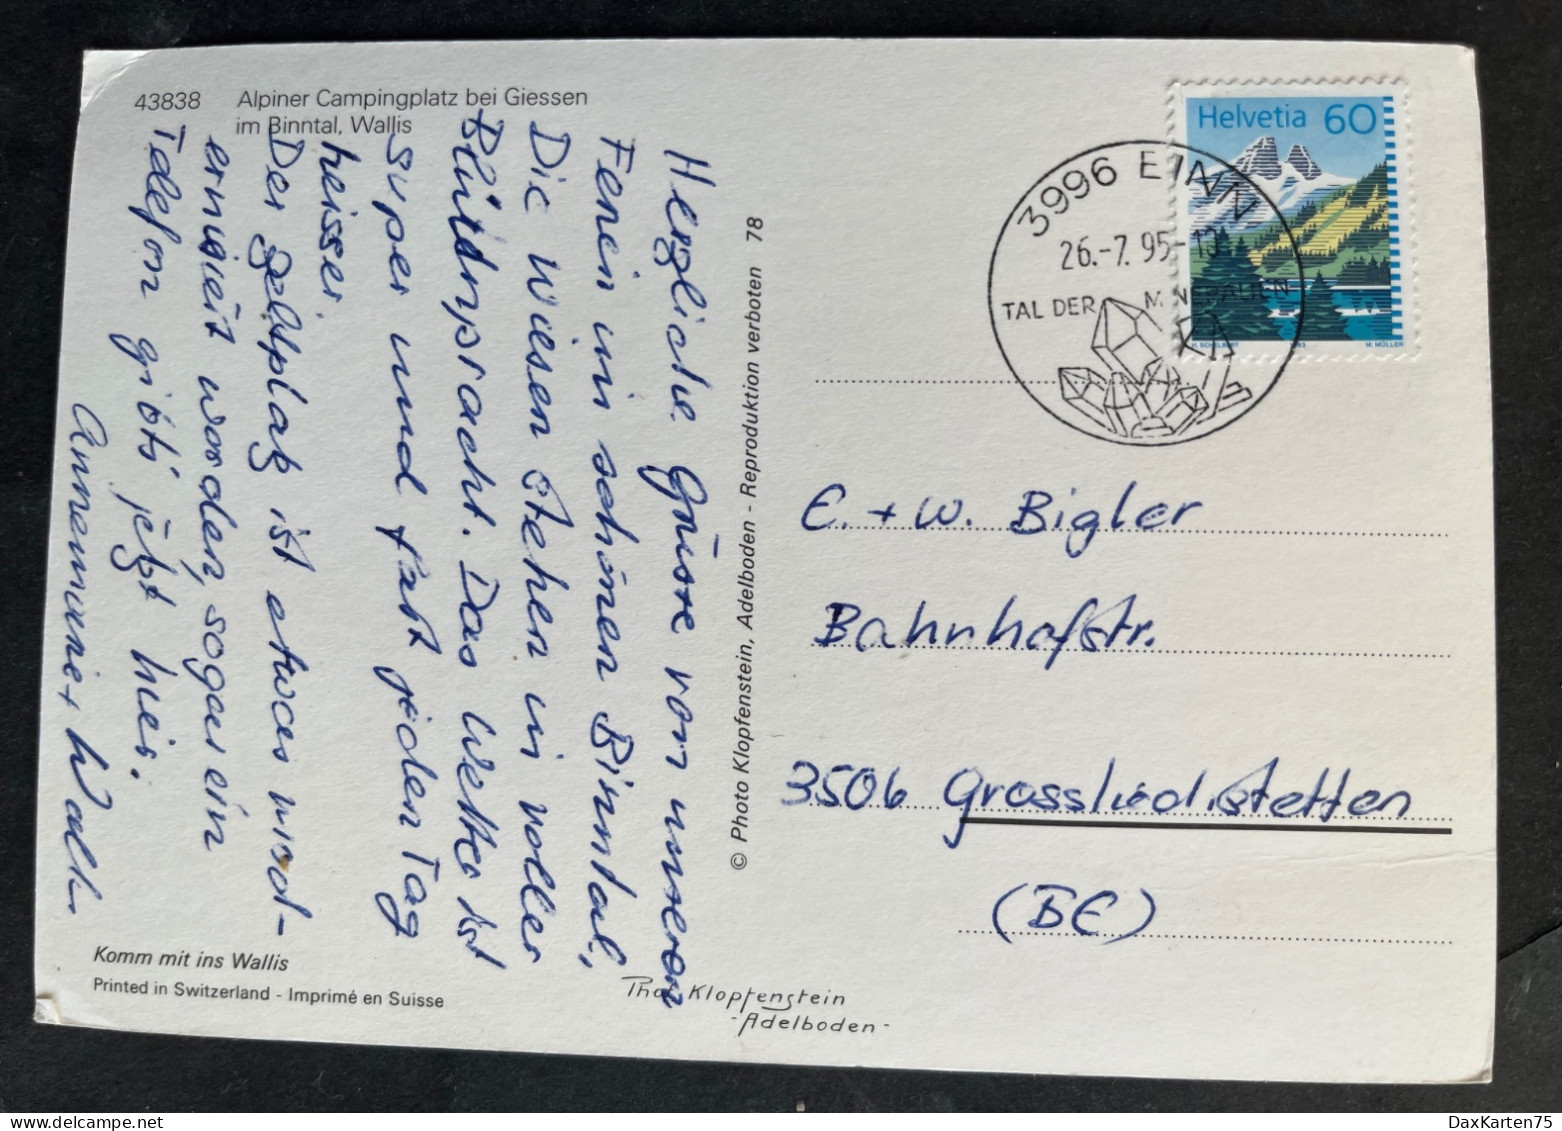 43838 Alpiner Campingplatz bei Giessen
im Binntal, Wallis
Herzliche Grüsse von unseren
Ferien im schönen Binntal,
Die Wiesen stehen in voller
Blütenpracht. Das Wetter ist
super und fast jeden Tag
heisser.
Der Zeltplatz ist etwas mod-
ernisiert worden, sogar ein
Telefon gibts jetzt hier.
Annemarie + Walti
Komm mit ins Wallis
Printed in Switzerland - Imprimé en Suisse
© Photo Klopfenstein, Adelboden - Reproduktion verboten 78
Klopfenstein
-Adelboden-
Helvetia 60
H. SCHELBERT 1993 M. MÜLLER
3996 BINN
26.-7. 95-
TAL DER MINERALIEN
E. + W. Bigler
Bahnhofstr.
3506 Grosshöchstetten
(BE)
DaxKarten75